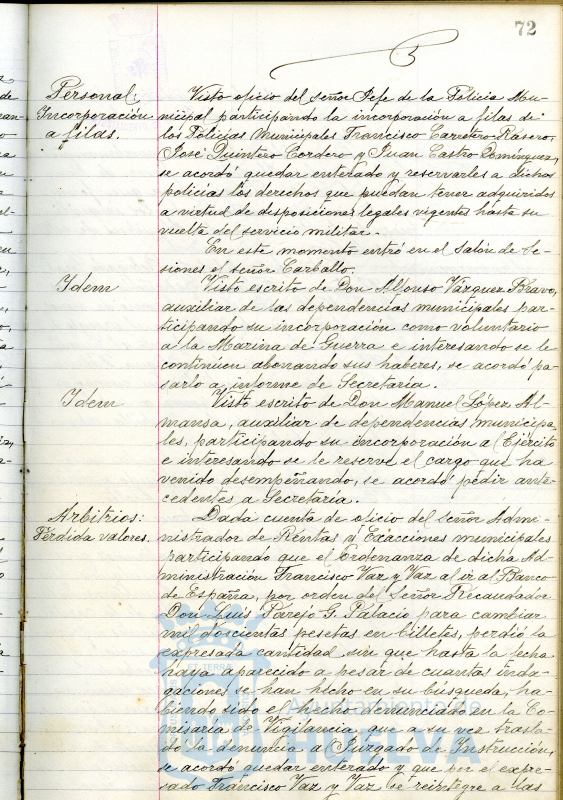 72
Personal:
Incorporación
a filas.
Visto oficio del señor Jefe de la Policia Mu-
nicipal participando la incorporación a filas de
los Policias Municipales Francisco Carretero Rasero,
José Quintero Cordero y Juan Castro Domínguez,
se acordó quedar enterado y reservarles a dichos
policías los derechos que puedan tener adquiridos
a virtud de desposiciones legales vigentes hasta su
vuelta del servicio militar.
En este momento entró en el Salón de Se-
siones el señor Carballo.
Idem
Visto escrito de Don Alfonso Vázquez Bravo,
auxiliar de las dependencias municipales par-
ticipando su incorporación como voluntario
a la Marina de Guerra e interesando se le
continúen abonando sus haberes, se acordó pa-
sarlo a informe de Secretaría.
Idem
Visto escrito de Don Manuel López Al-
mansa, auxiliar de dependencias municipa-
les, participando su incorporación al Ejército
e interesando se le reserve el cargo que ha
venido desempeñando, se acordó pedir ante-
cedentes a Secretaría.
Arbitrios:
Pérdida valores.
Dada cuenta de oficio del señor Admi-
nistrador de Rentas y Exacciones municipales
participando que el Ordenanza de dicha Ad-
ministración Francisco Vaz y Vaz al ir al Banco
de España, por orden del señor Recaudador
Don Luis Parejo G. Palacio para cambiar
mil doscientas pesetas en billetes, perdió la
expresada cantidad sin que hasta la fecha
haya aparecido a pesar de cuantas inda-
gaciones se han hecho en su búsqueda, ha-
biendo sido el hecho denunciado en la Co-
misaría de Vigilancia, que a su vez trasla-
dó la denuncia al Juzgado de Instrucción,
se acordó quedar enterado y que por el expre-
sado Francisco Vaz y Vaz se reintegre a las
Ayuntamiento de
HUELVA